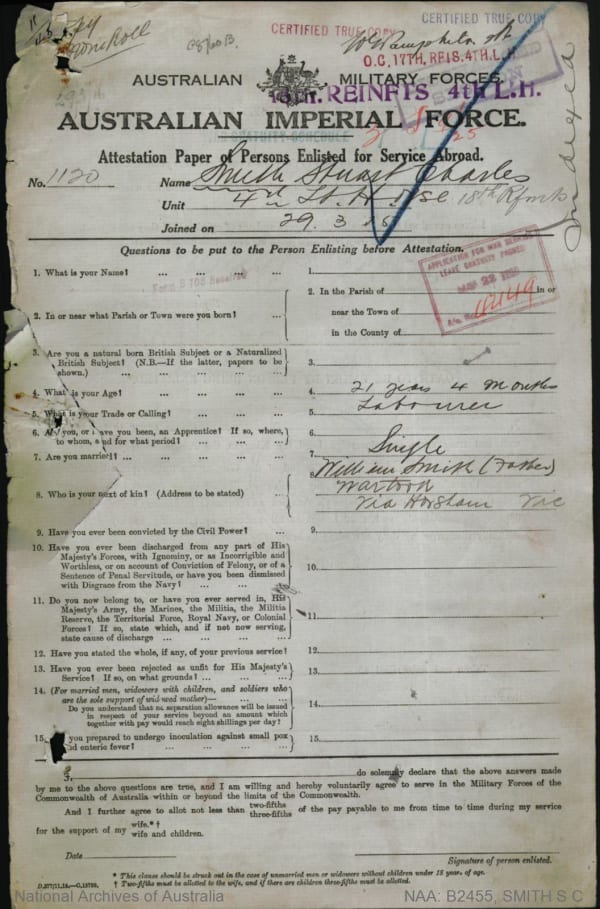 Copy
for Roll
CERTIFIED TRUE COPY
CERTIFIED TRUE COPY
O.C. 17TH. REIS. 4TH. L.H
AUSTRALIAN MILITARY FORCES.
18th. REINFTS 4th L.H.
AUSTRALIAN IMPERIAL FORCE.
GRATUITY SCHEDULE
Attestation Paper of Persons Enlisted for Service Abroad.
No. 1120 Name Smith Stuart Charles
Unit 4th Lt. H. Rse 18th Rfmts
Joined on 29. 3. 16
Questions to be put to the Person Enlisting before Attestation.
1. What is your Name? ... ... ... ... 1.
Form B 103 Received
APPLICATION FOR WAR SERVICE
LEAVE GRATUITY PASSED
2. In or near what Parish or Town were you born? ... 2. In the Parish of in or
near the Town of
in the County of
3. Are you a natural born British Subject or a Naturalized
British Subject? (N.B.—If the latter, papers to be
shown.) ... ... ... ... 3.
4. What is your Age? ... ... ... ... 4. 21 years 4 months
5. What is your Trade or Calling? ... ... ... 5. Labourer
6. Are you, or have you been, an Apprentice? If so, where,
to whom, and for what period? ... ... ... 6.
7. Are you married? ... ... ... ... 7. Single
8. Who is your next of kin? (Address to be stated) ... 8. William Smith (Father)
Wartook
Via Horsham Vic
9. Have you ever been convicted by the Civil Power? ... 9.
10. Have you ever been discharged from any part of His
Majesty's Forces, with Ignominy, or as Incorrigible and
Worthless, or on account of Conviction of Felony, or of a
Sentence of Penal Servitude, or have you been dismissed
with Disgrace from the Navy? ... ... ... 10.
11. Do you now belong to, or have you ever served in, His
Majesty's Army, the Marines, the Militia, the Militia
Reserve, the Territorial Force, Royal Navy, or Colonial
Forces? If so, state which, and if not now serving,
state cause of discharge ... ... ... 11.
12. Have you stated the whole, if any, of your previous service? 12.
13. Have you ever been rejected as unfit for His Majesty's
Service? If so, on what grounds? ... ... ... 13.
14. (For married men, widowers with children, and soldiers who
are the sole support of widowed mother)—
Do you understand that no separation allowance will be issued
in respect of your service beyond an amount which
together with pay would reach eight shillings per day? 14.
15. you prepared to undergo inoculation against small pox
and enteric fever? ... ... ... ... 15.
I, do solemnly declare that the above answers made
by me to the above questions are true, and I am willing and hereby voluntarily agree to serve in the Military Forces of the
Commonwealth of Australia within or beyond the limits of the Commonwealth.
And I further agree to allot not less than two-fifths three-fifths of the pay payable to me from time to time during my service
for the support of my wife.*† wife and children.
Date
Signature of person enlisted.
* This clause should be struck out in the case of unmarried men or widowers without children under 18 years of age.
† Two-fifths must be allotted to the wife, and if there are children three-fifths must be allotted.
D.277/11.15.—C.13793.
National Archives of Australia
NAA: B2455, SMITH S C